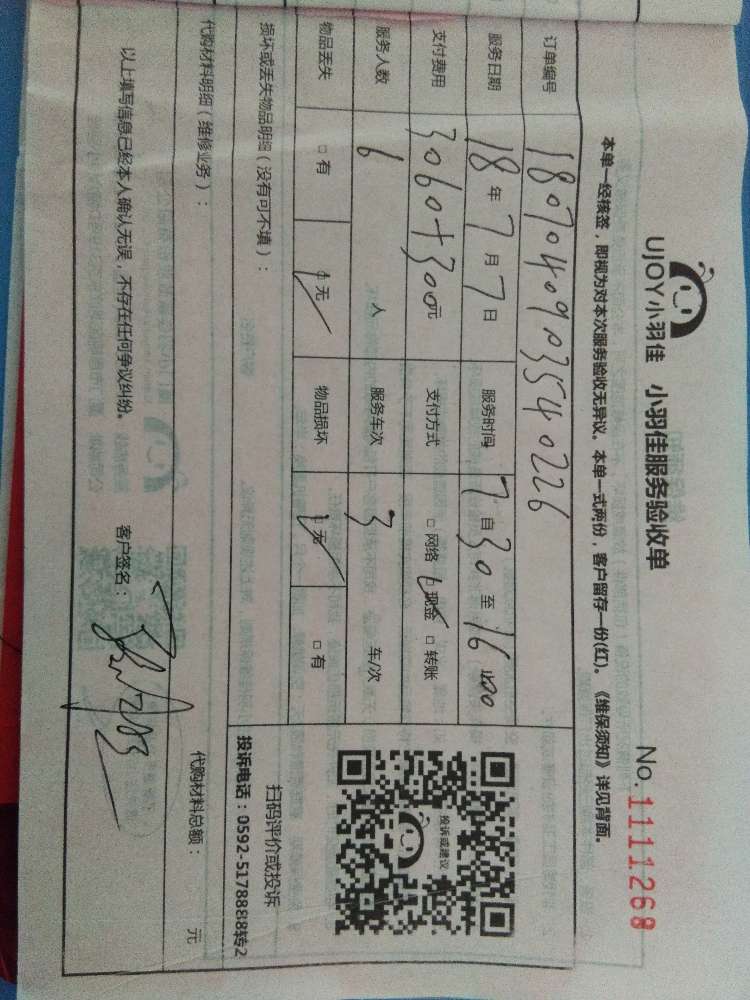 UJOY小羽佳 小羽佳服务验收单 No.1111268
本单一经核签，即视为对本次服务验收无异议。本单一式两份，客户留存一份(红)。《维保须知》详见背面。
订单编号 1807040903540226
服务日期 18年7月7日 服务时间 7自30至16:00
支付费用 3060+300元 支付方式 □网络 □现金 □转账
服务人数 6 人 服务车次 3 车/次
物品丢失 □有 □无 物品损坏 □无 □有
损坏或丢失物品明细（没有可不填）：
投诉或建议
扫码评价或投诉
投诉电话：0592-5178888转2
代购材料明细（维修业务）： 代购材料总额： 元
以上填写信息已经本人确认无误，不存在任何争议纠纷。 客户签名：